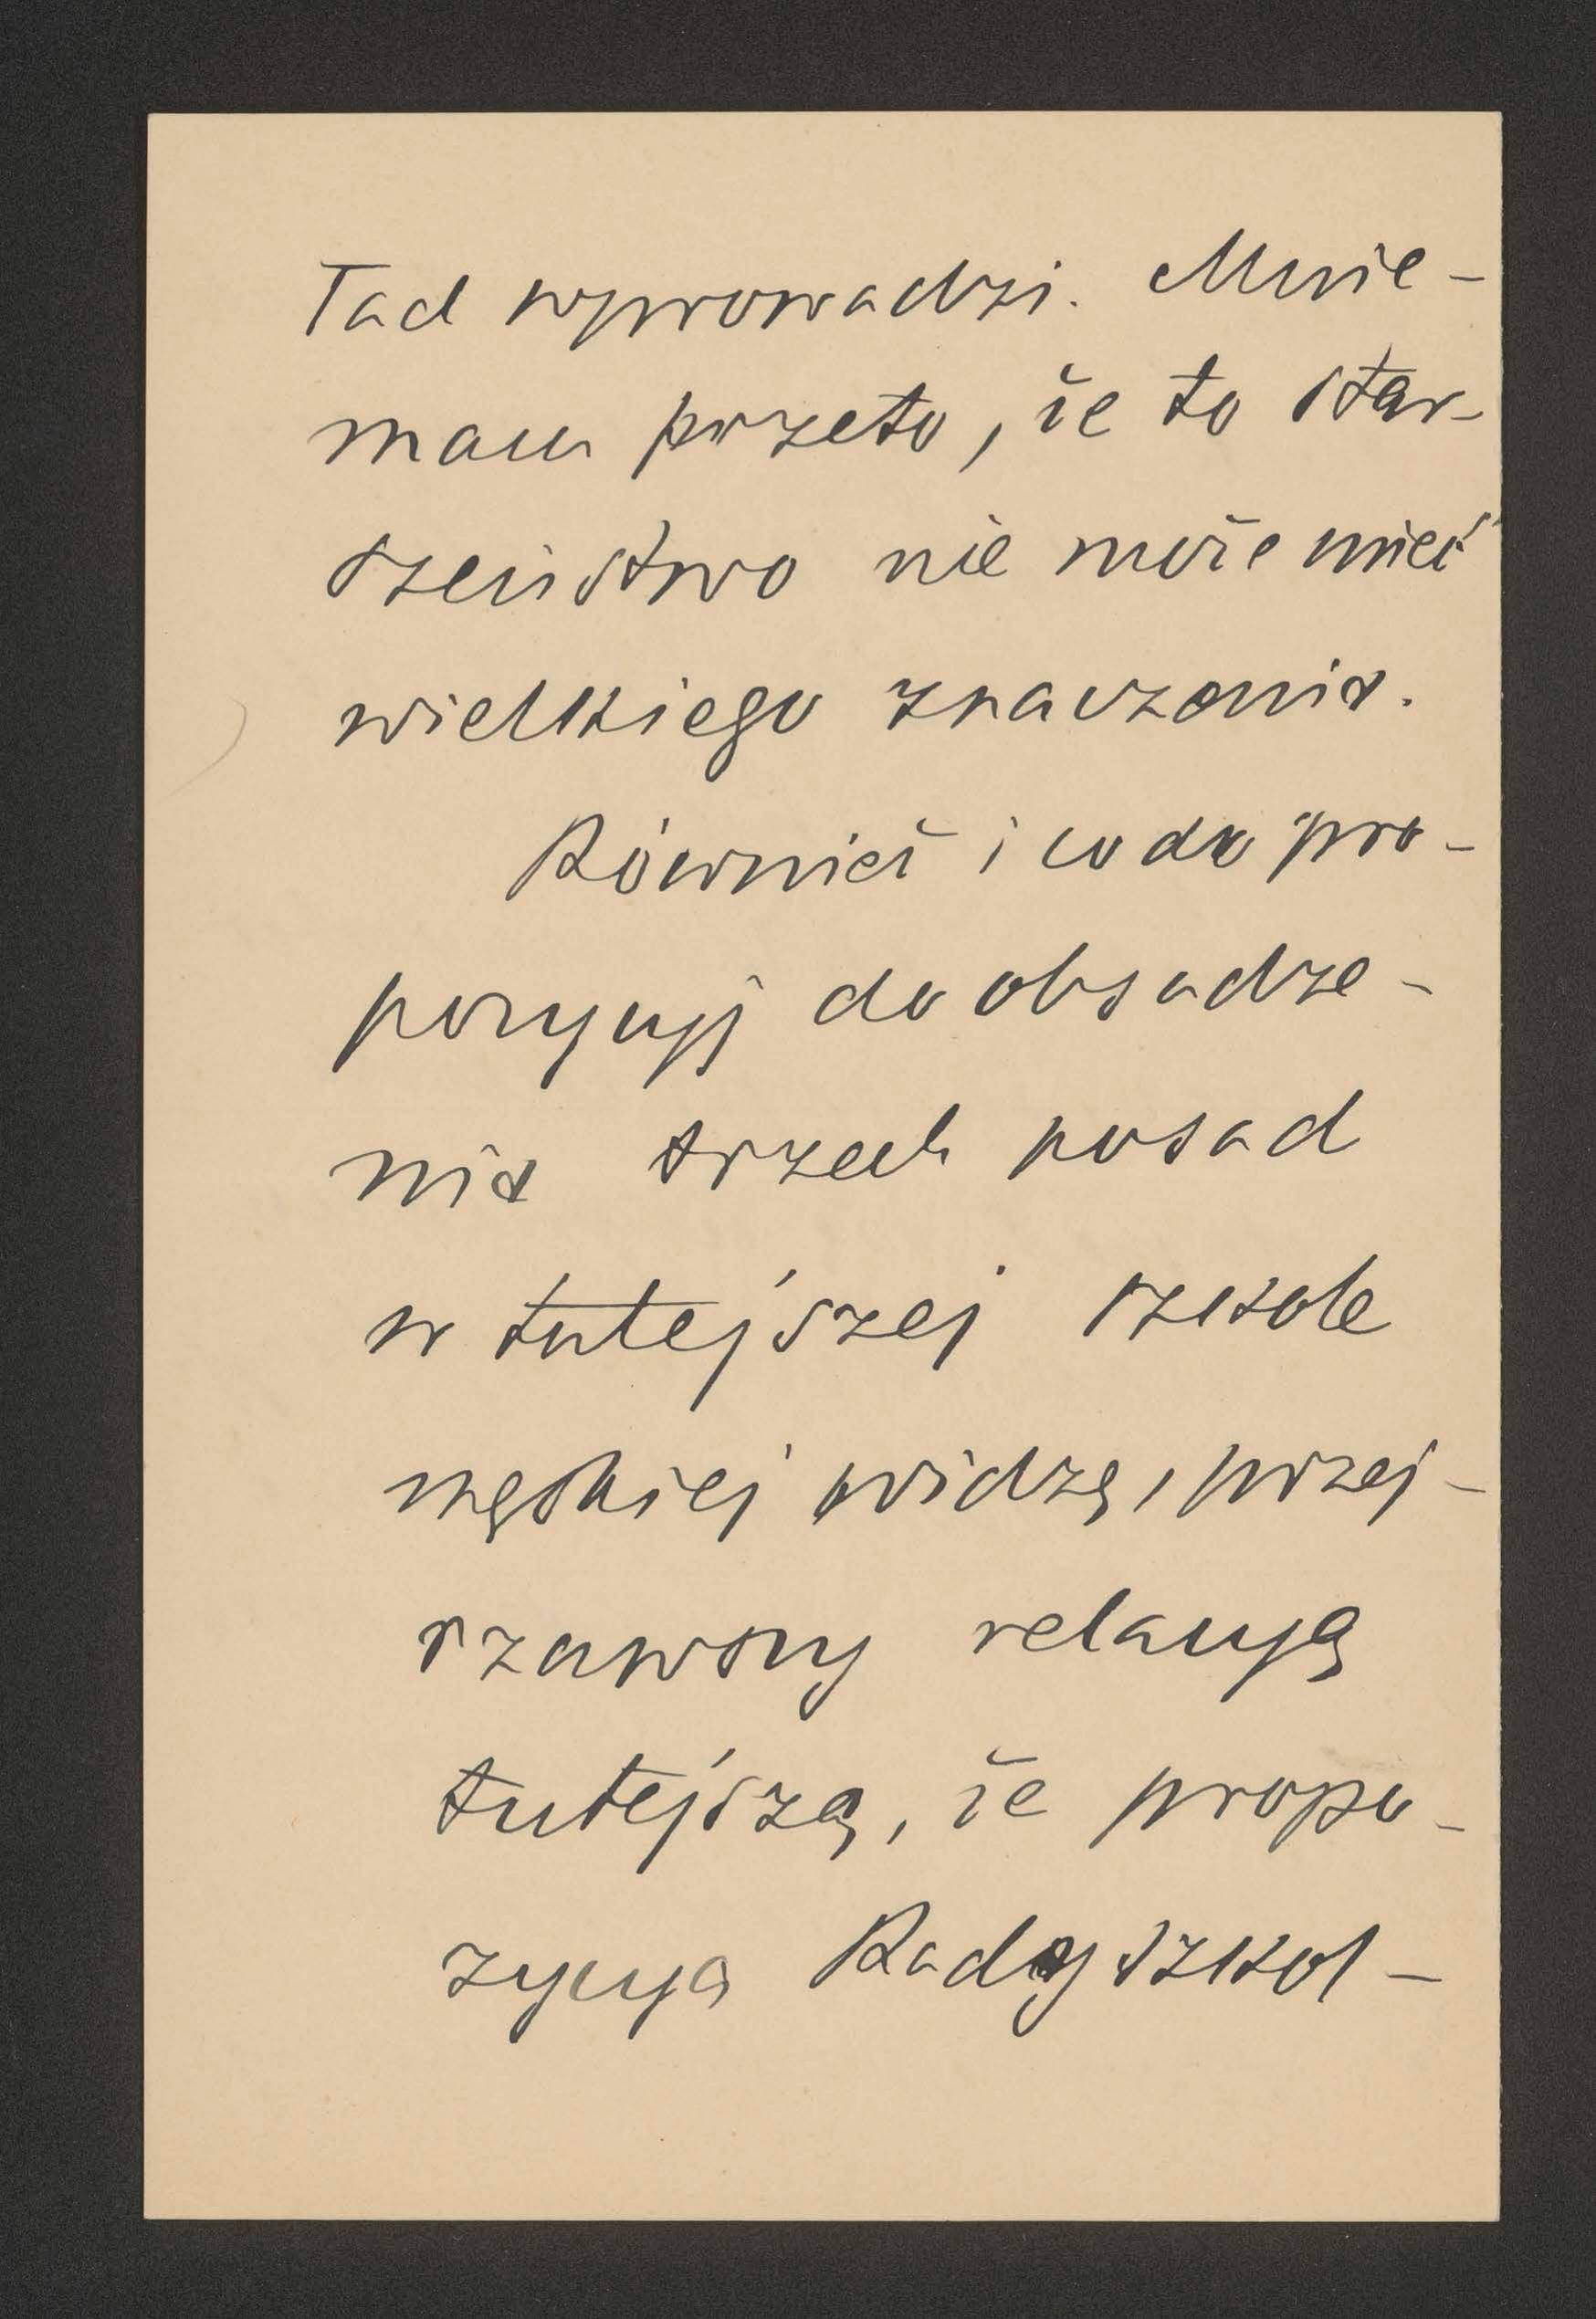 ład wprowadzi. Mnie-
mam przeto, że to star-
szeństwo nie może mieć
wielkiego znaczenia.
Również i co do pro-
pozycyj do obsadze-
nia trzech posad
w tutejszej szkole
męskiej widzę, przej-
rzawszy relacyą
tutejszą, że propo-
zycya Rady szkol-